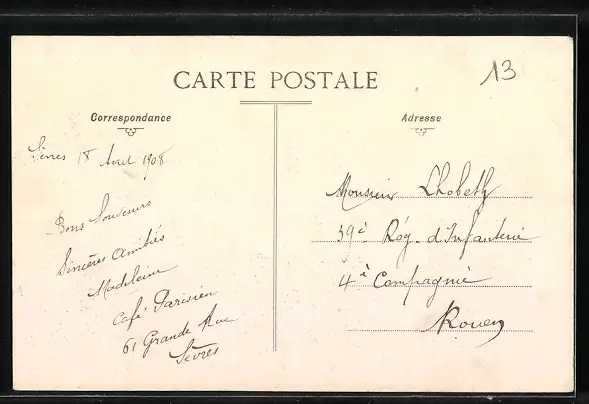 CARTE POSTALE
13
Correspondance
Sèvres 18 Avril 1908
Bons Souvenirs
Sincères Amitiés
Madeleine
Café Parisien
61 Grande Rue
Sèvres
Adresse
Monsieur Lhobeth
39è Rég. d'Infanterie
4è Compagnie
Rouen